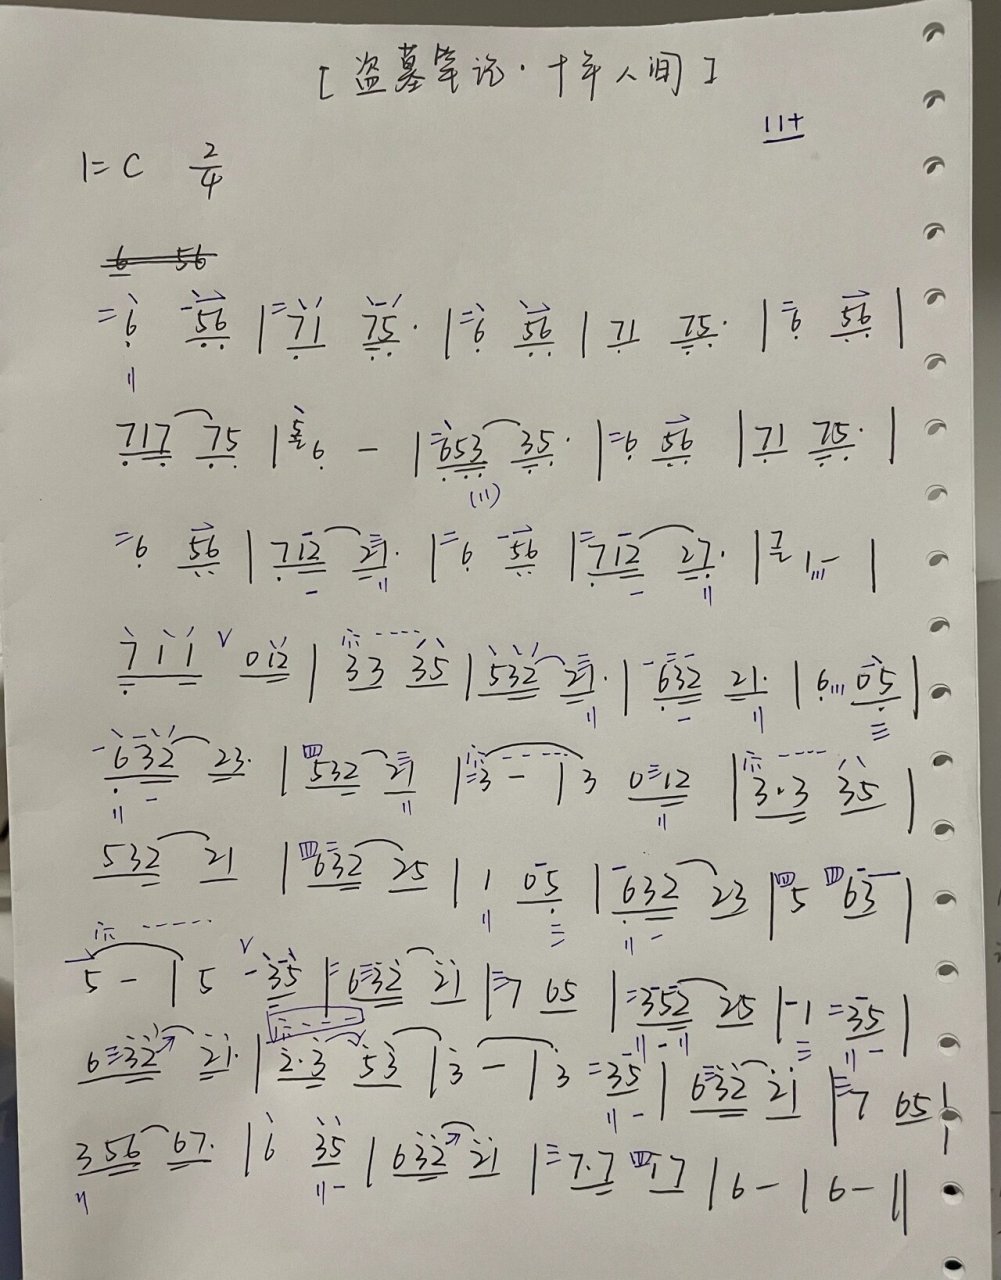 [ 盗墓笔记 · 十年人间 ]
11+
1= C 2/4
6 56
6 56 | 71 75· | 6 56 | 71 75· | 6 56 |
717 75 | 5 6 - | 653 35· | 6 56 | 71 75· |
6 56 | 712 27· | 6 56 | 712 27· | 7 1 - |
7 1 1 V 0 12 | 33 35 | 532 21· | 632 21· | 6 05 |
632 23· | 四 532 21 | 3 - | 3 0 12 | 3·3 35 |
532 21 | 四 632 25 | 1 05 | 632 23 | 四 5 四 63 |
5 - | 5 V 35 | 632 21 | 7 65 | 352 25 | 1 35 |
632 21· | 2·3 53 | 3 - | 3 35 | 632 21 | 7 65 |
356 67· | 6 35 | 632 21 | 7·7 四 17 | 6 - | 6 - ||